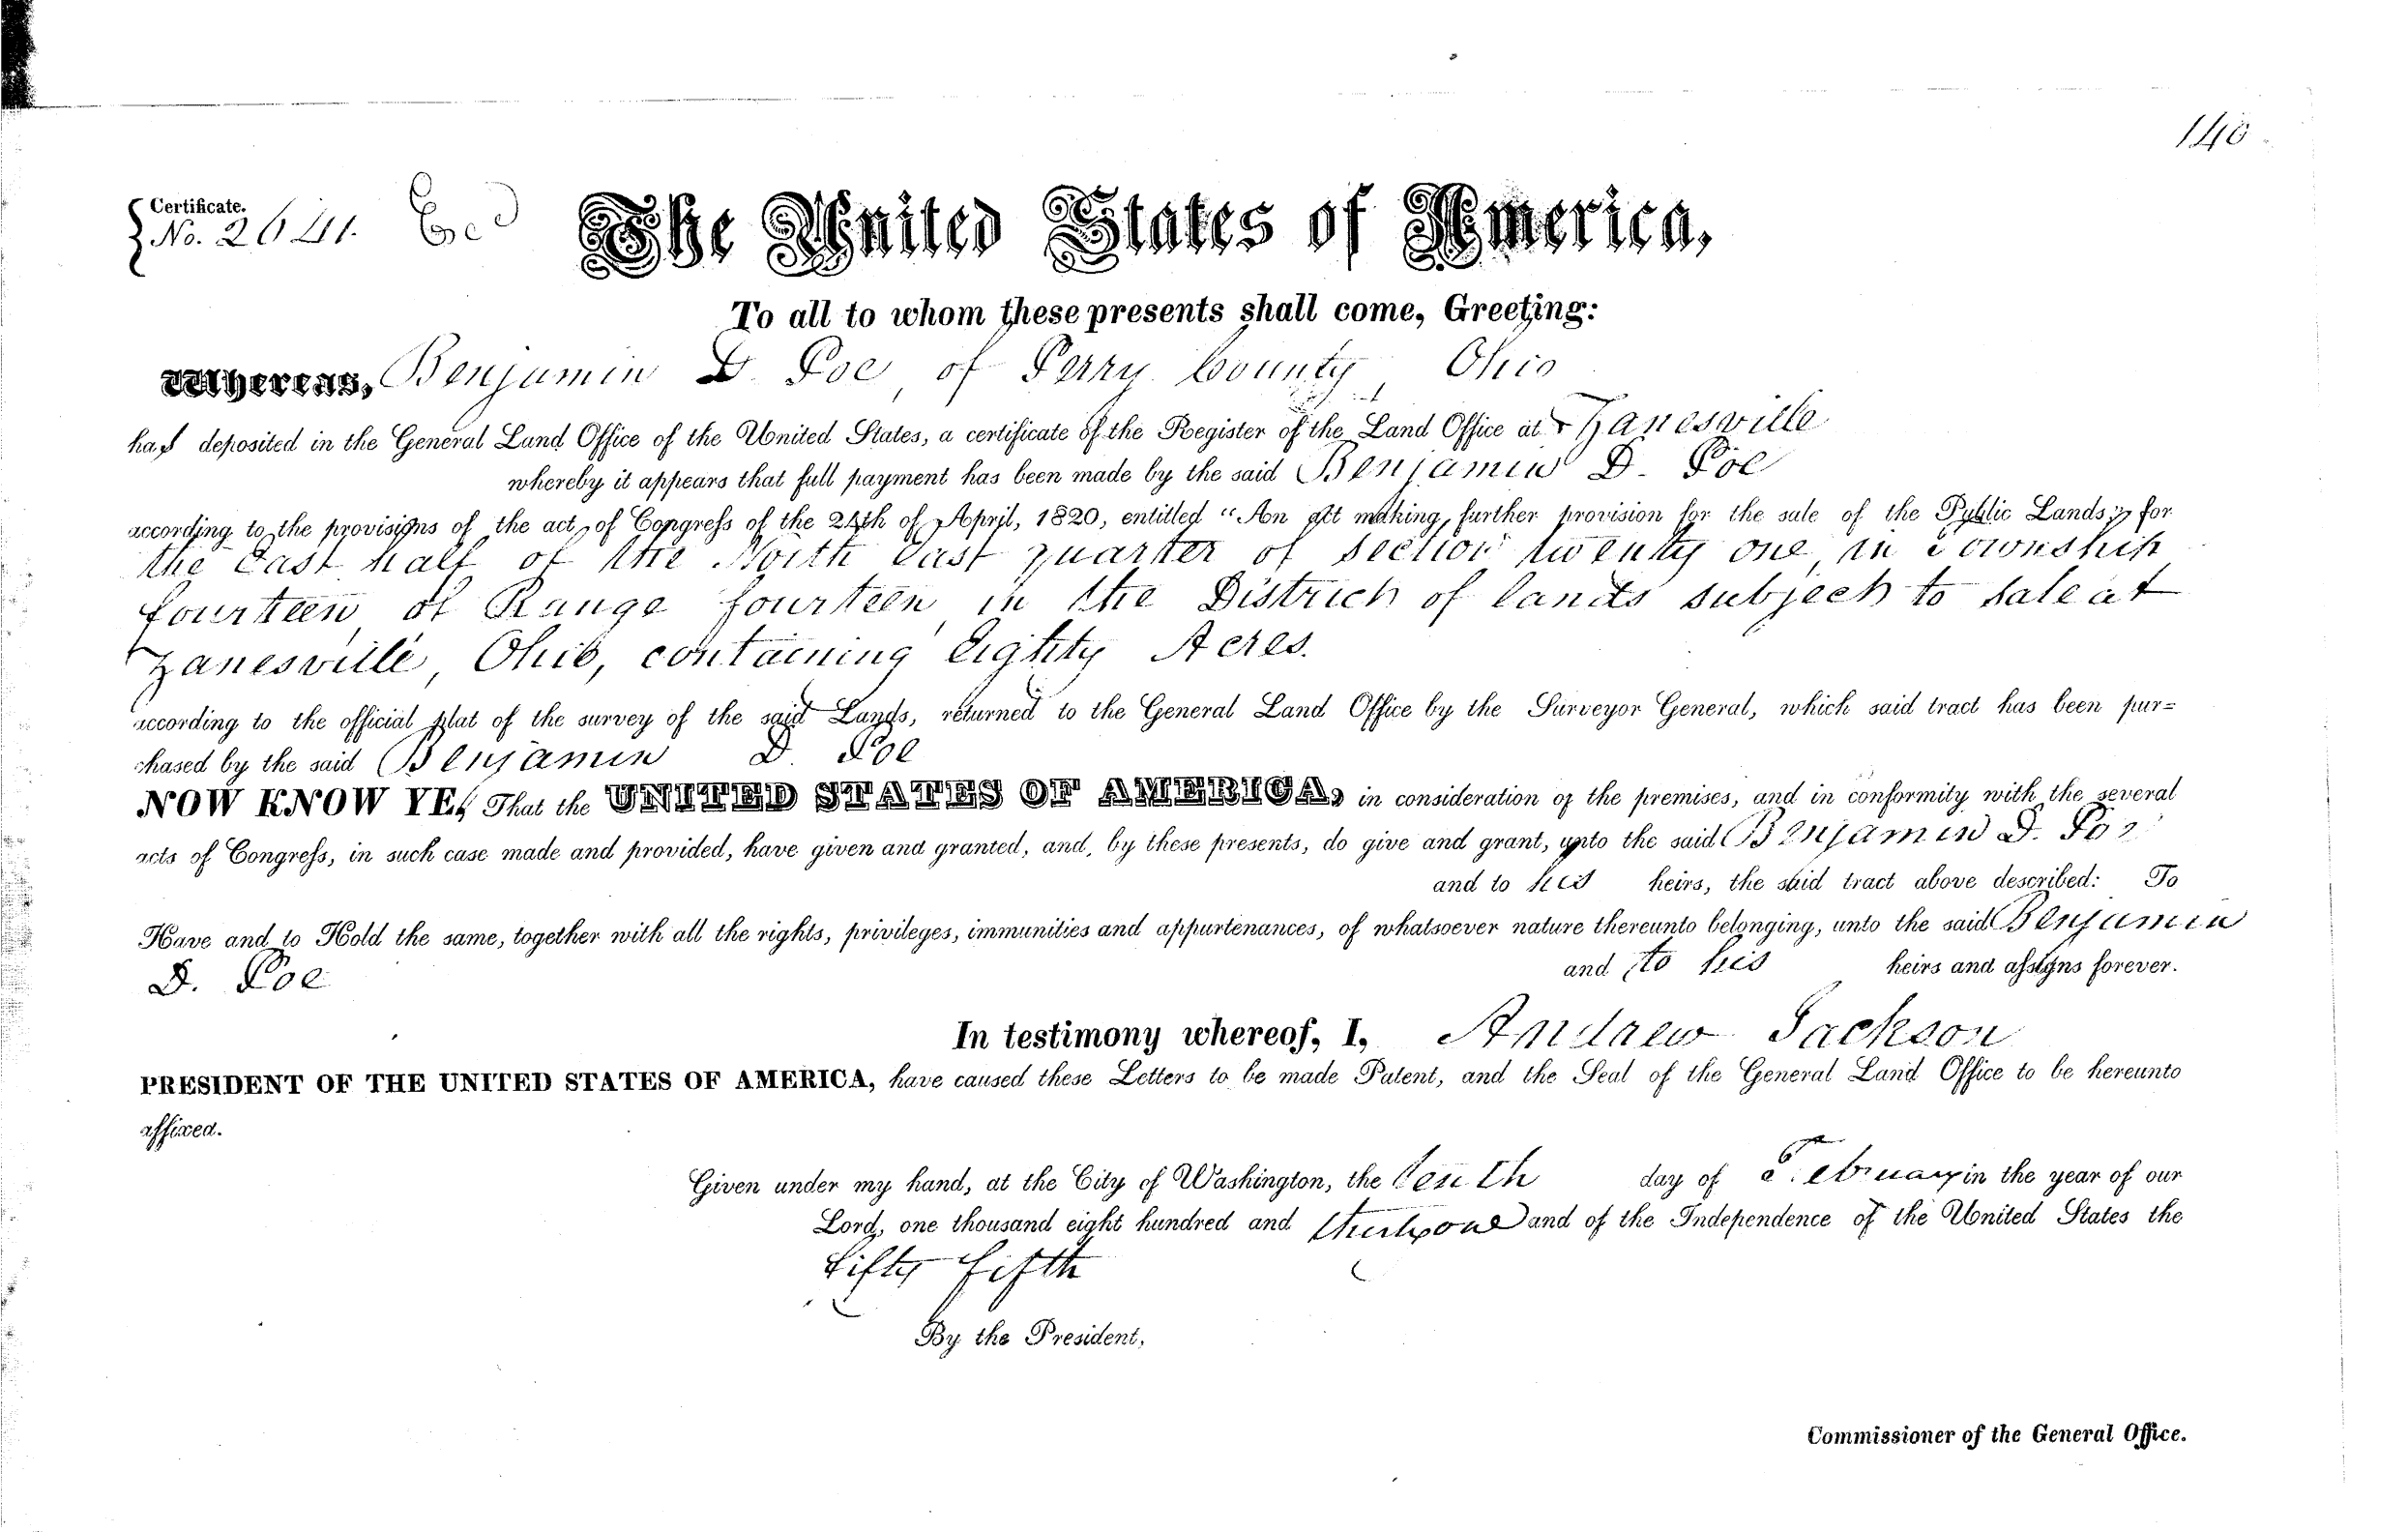 140
Certificate.
No. 2641.
The United States of America,
To all to whom these presents shall come, Greeting:
Whereas, Benjamin D. Poe, of Perry County, Ohio
has deposited in the General Land Office of the United States, a certificate of the Register of the Land Office at Zanesville
whereby it appears that full payment has been made by the said Benjamin D. Poe
according to the provisions of the act of Congress of the 24th of April, 1820, entitled "An act making further provision for the sale of the Public Lands," for
the East half of the North East quarter of Section twenty one, in Township
fourteen, of Range fourteen, in the District of lands subject to sale at
Zanesville, Ohio, containing Eighty Acres.
according to the official plat of the survey of the said Lands, returned to the General Land Office by the Surveyor General, which said tract has been pur=
chased by the said Benjamin D. Poe
NOW KNOW YE, That the UNITED STATES OF AMERICA, in consideration of the premises, and in conformity with the several
acts of Congress, in such case made and provided, have given and granted, and, by these presents, do give and grant, unto the said Benjamin D. Poe
and to his heirs, the said tract above described: To
Have and to Hold the same, together with all the rights, privileges, immunities and appurtenances, of whatsoever nature thereunto belonging, unto the said Benjamin
D. Poe and to his heirs and assigns forever.
In testimony whereof, I, Andrew Jackson
PRESIDENT OF THE UNITED STATES OF AMERICA, have caused these Letters to be made Patent, and the Seal of the General Land Office to be hereunto
affixed.
Given under my hand, at the City of Washington, the tenth day of February in the year of our
Lord, one thousand eight hundred and thirty one and of the Independence of the United States the
fifty fifth
By the President,
Commissioner of the General Office.